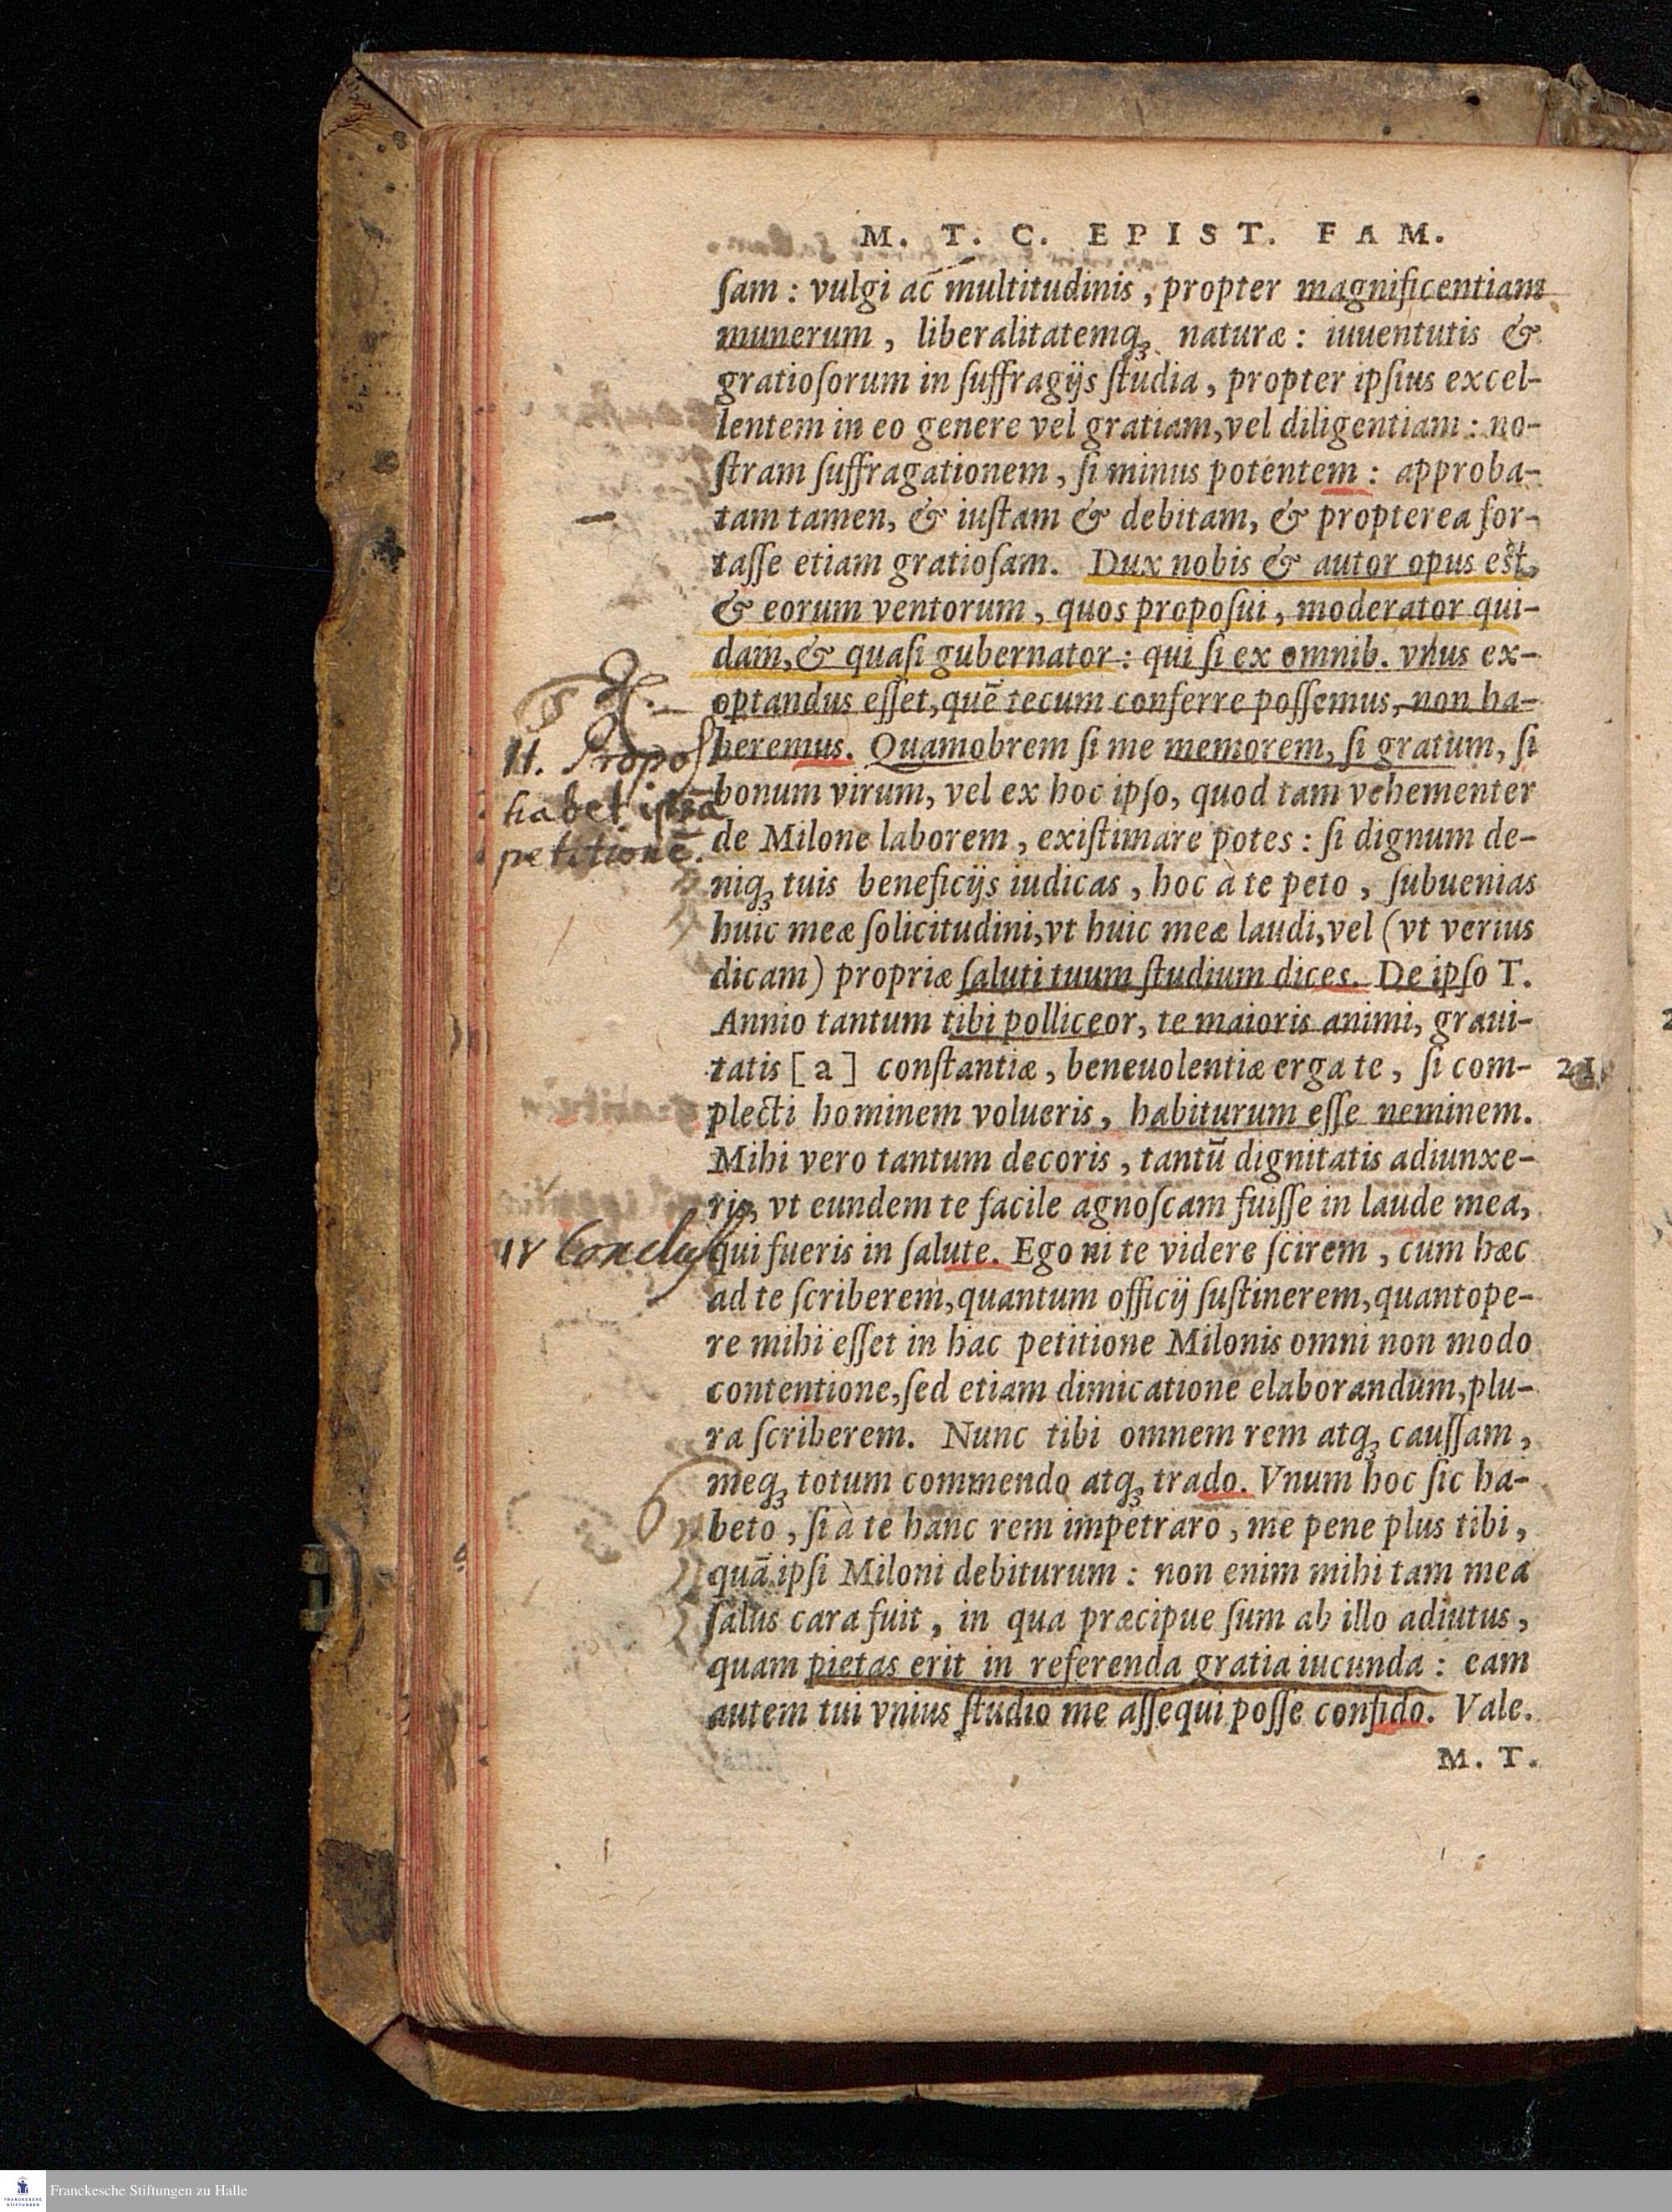 M. T. C. EPIST. FAM.
ſam : vulgi ac multitudinis, propter magnificentiam
munerum, liberalitatemq́ꝫ naturæ : iuuentutis &
gratioſorum in ſuffragijs ſtudia, propter ipſius excel-
lentem in eo genere vel gratiam, vel diligentiam : no-
ſtram ſuffragationem, ſi minus potentem : approba-
tam tamen, & iuſtam & debitam, & propterea for-
taſſe etiam gratioſam. Dux nobis & autor opus eſt,
& eorum ventorum, quos propoſui, moderator qui-
dam, & quaſi gubernator : qui ſi ex omnib. vnus ex-
optandus eſſet, quē tecum conferre poſſemus, non ha-
beremus. Quamobrem ſi me memorem, ſi gratum, ſi
II. Propoſ
bonum virum, vel ex hoc ipſo, quod tam vehementer
habet ipsā
de Milone laborem, exiſtimare potes : ſi dignum de-
petitionē.
niqꝫ tuis beneficijs iudicas, hoc à te peto, ſubuenias
huic meæ ſolicitudini, vt huic meæ laudi, vel (vt verius
dicam) propriæ ſaluti tuum ſtudium dices. De ipſo T.
Annio tantum tibi polliceor, te maioris animi, graui-
tatis [a] conſtantiæ, beneuolentiæ erga te, ſi com- 21
plecti hominem volueris, habiturum eſſe neminem.
Mihi vero tantum decoris, tantū dignitatis adiunxe-
ris, vt eundem te facile agnoſcam fuiſſe in laude mea,
IV Concluſ
qui fueris in ſalute. Ego ni te videre ſcirem, cum hæc
ad te ſcriberem, quantum officij ſuſtinerem, quantope-
re mihi eſſet in hac petitione Milonis omni non modo
contentione, ſed etiam dimicatione elaborandum, plu-
ra ſcriberem. Nunc tibi omnem rem atqꝫ cauſſam,
meqꝫ totum commendo atqꝫ trado. Vnum hoc ſic ha-
beto, ſi à te hanc rem impetraro, me pene plus tibi,
quā ipſi Miloni debiturum : non enim mihi tam mea
ſalus cara fuit, in qua præcipue ſum ab illo adiutus,
quam pietas erit in referenda gratia iucunda : eam
autem tui vnius ſtudio me aſſequi poſſe confido. Vale.
M. T.
Franckesche Stiftungen zu Halle